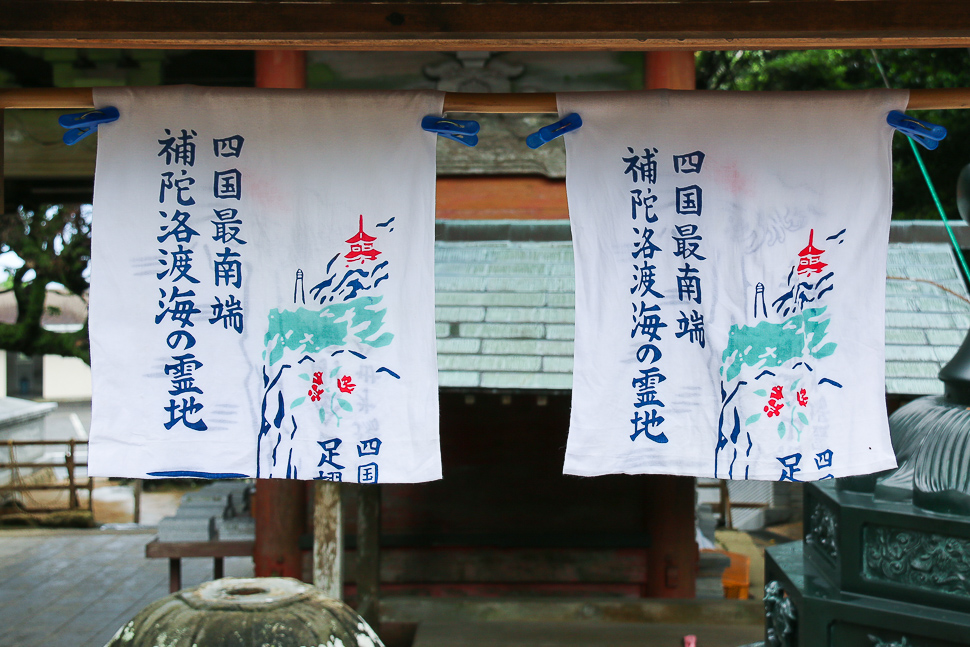 四国最南端
補陀洛渡海の霊地
四国
足摺
四国最南端
補陀洛渡海の霊地
四国
足